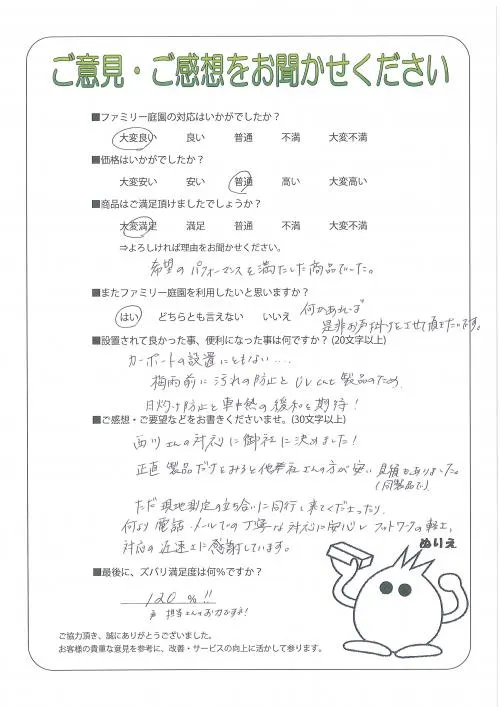 ご意見・ご感想をお聞かせください
■ファミリー庭園の対応はいかがでしたか?
大変良い 良い 普通 不満 大変不満
■価格はいかがでしたか?
大変安い 安い 普通 高い 大変高い
■商品はご満足頂けましたでしょうか?
大変満足 満足 普通 不満 大変不満
⇒よろしければ理由をお聞かせください。
希望のパフォーマンスを満たした商品でした。
■またファミリー庭園を利用したいと思いますか?
はい どちらとも言えない いいえ
何かあれば
是非お声掛けさせて頂きたいです。
■設置されて良かった事、便利になった事は何ですか?(20文字以上)
カーポートの設置にともない…
梅雨前に汚れの防止と 製品のため
日灼け防止と車中熱の緩和を期待!
■ご感想・ご要望などをお書きくださいませ。(30文字以上)
西川さんの対応に御社に決めました!
正直製品だけをみると他業社さんの方が安い見積もありました。
(同製品で)
ただ現地測定の立ち合いに同行し来てくださったり、
何より電話・メールでの丁寧な対応に安心しフットワークの軽さ、
対応の迅速さに感謝しています。
ぬりえ
■最後に、ズバリ満足度は何%ですか?
120 %!!
担当さんのお力ですネ!
ご協力頂き、誠にありがとうございました。
お客様の貴重な意見を参考に、改善・サービスの向上に活かして参ります。